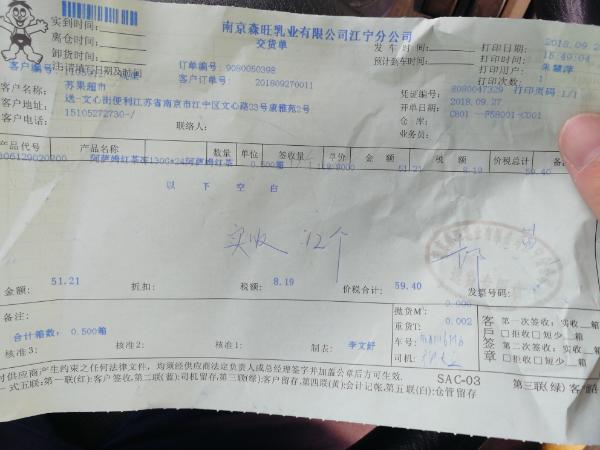 南京森旺乳业有限公司江宁分公司
交货单
来车时间:
离仓时间:
卸货时间:
注:请填写日期及时间
发车时间:
预计到车时间:
打印日期: 2018.09.2
打印时间: 15:49:04
打印用户: 朱慧萍
打印页码:1/1
客户编号:
客户名称: 苏果超市
客户地址: 送-文心街便利江苏省南京市江宁区文心路33号康雅苑2号
客户电话: 15105272730-/
联络人:
订单编号: 9080050398
客户订单号: 201809270011
凭证编号: 8080047329
开单日期: 2018.09.27
仓库: C801 --P58001-C001
业务员:
产品代号 产品名称 数量 单位 签收量 单价 金额 税额 价税总计 备
006129020200 阿萨姆红茶 0.500箱 51.21 8.19 59.40
以下空白
实收 12个
金额: 51.21 折扣: 税额: 8.19 价税合计: 59.40 发票号码:
备注:
合计箱数: 0.500箱
抛货M³: 0.000
重货T: 0.002
车号:
司机:
客户签章
第一次签收: 实收__箱
□拒收□短少__箱
第二次签收: 实收__箱
□拒收□短少__箱
核准3: 核准2: 核准1: 制表: 李文舒
供应商产生约束之任何法律文件,均须经供应商法定负责人或总经理签字并加盖公章后方可生效.
SAC-03
第三联(绿)客
一式五联:第一联(红):客户签收,第二联(蓝):司机留存,第三联(绿):客户留存,第四联(黄):会计记帐,第五联(白):仓管留存